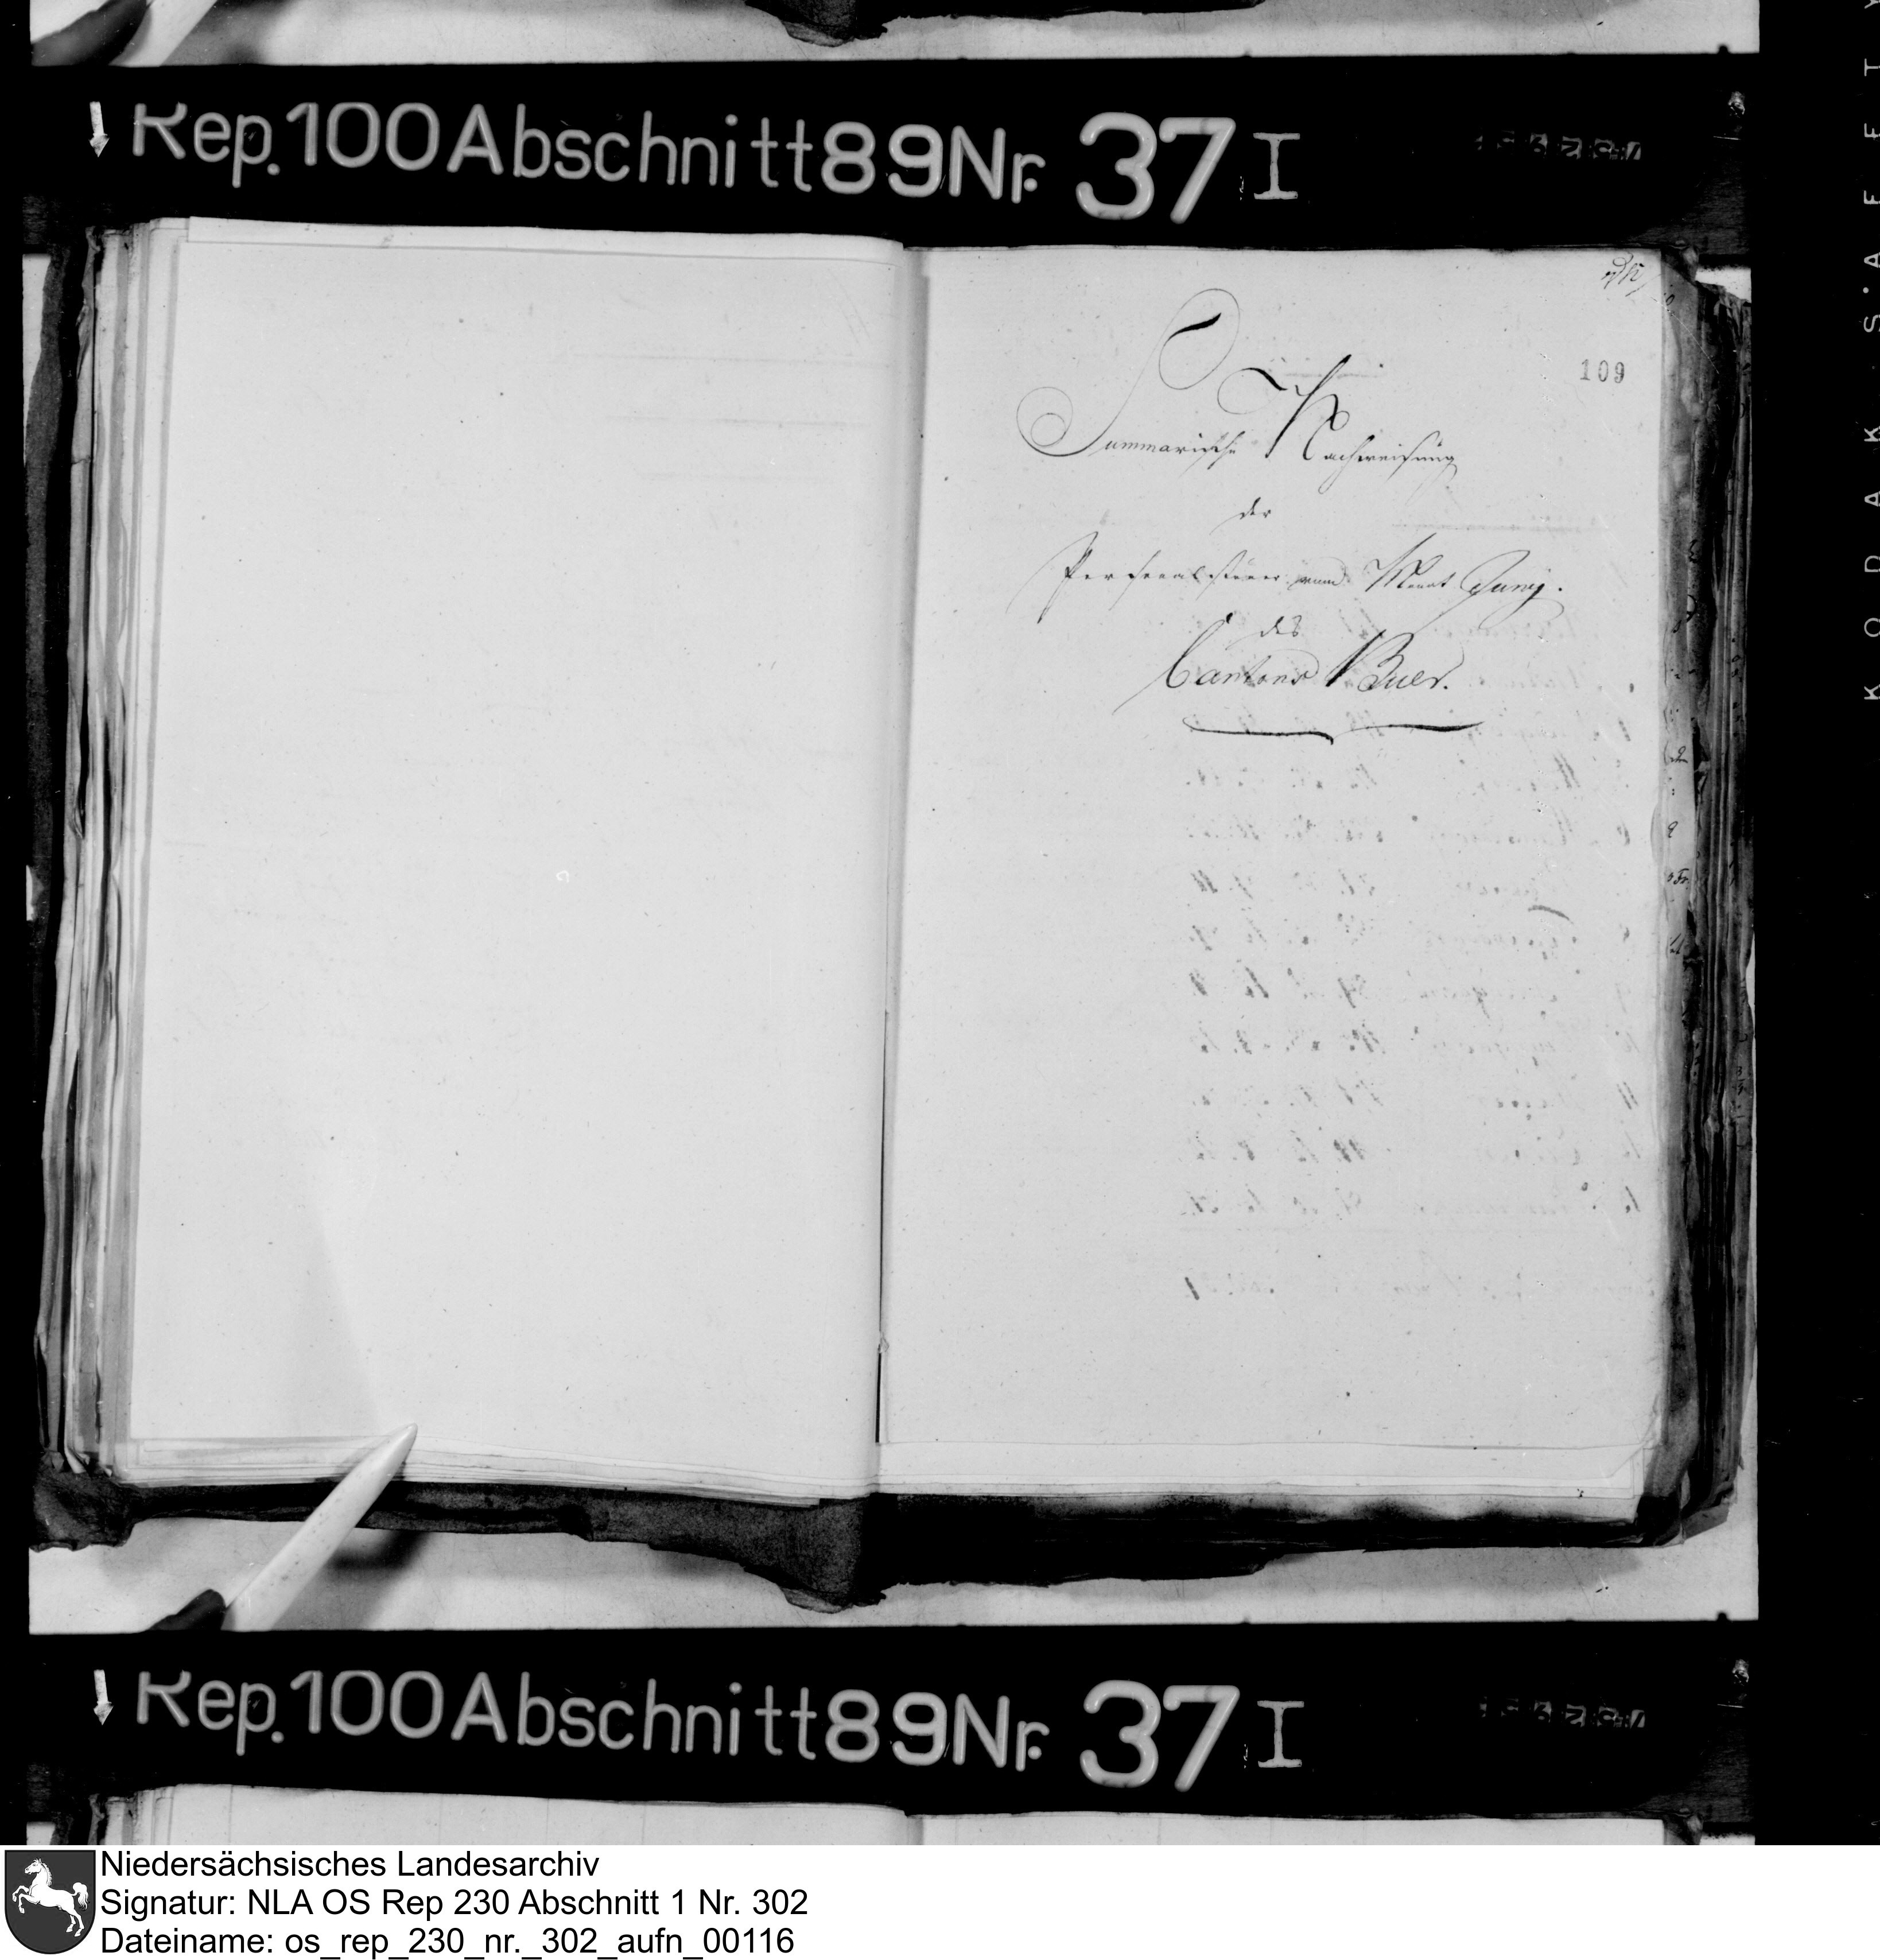 Rep. 100 Abschnitt 89 Nr. 37 I
109
Summarische Nachweisung
der
Personalsteuer vom Monat Juny.
des
Cantons Buer.
Rep. 100 Abschnitt 89 Nr. 37 I
KODAK · SAFETY
Niedersächsisches Landesarchiv
Signatur: NLA OS Rep 230 Abschnitt 1 Nr. 302
Dateiname: os_rep_230_nr._302_aufn_00116